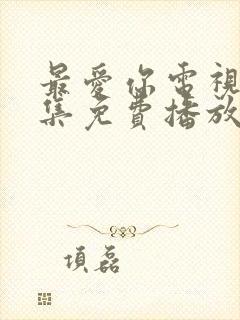 最愛你電視
集免費播放
項磊